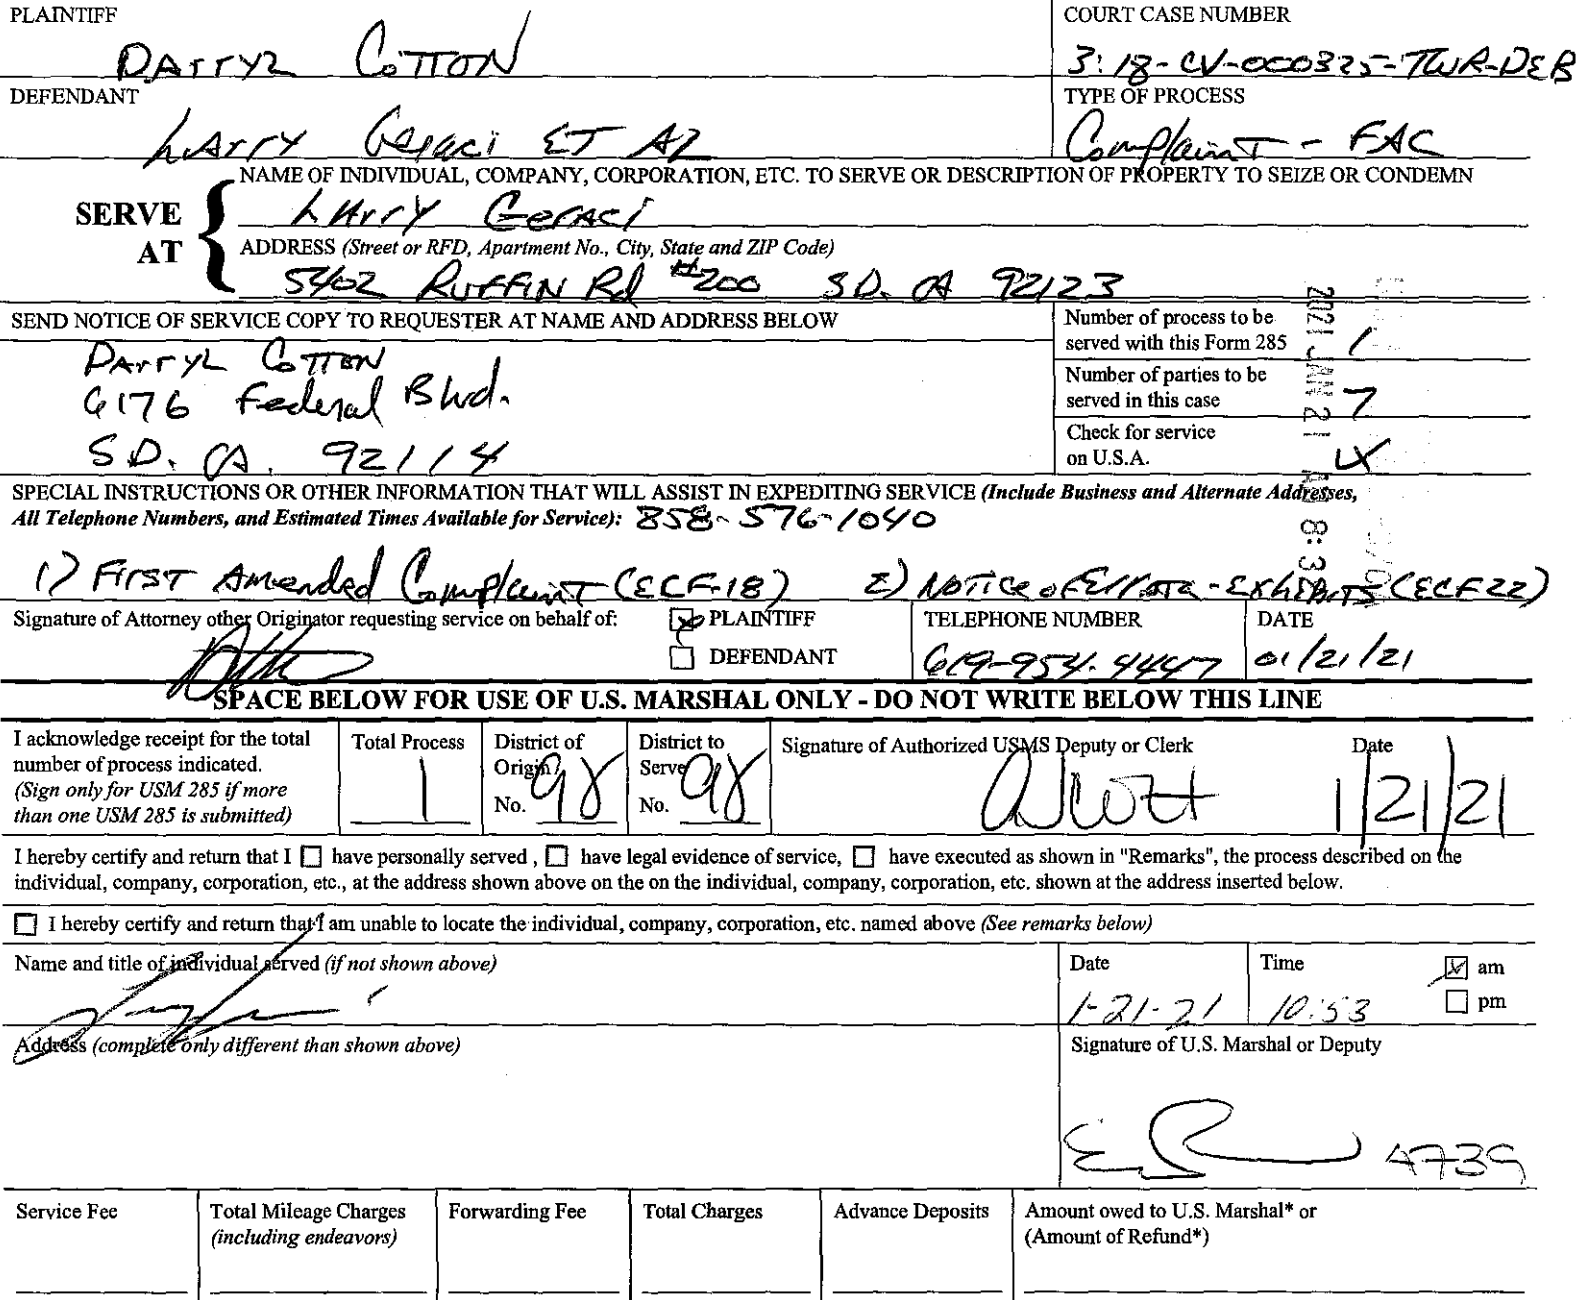 PLAINTIFF
Darryl Cotton
COURT CASE NUMBER
3:18-cv-000325-TWR-DEB
DEFENDANT
Larry Geraci ET Al
TYPE OF PROCESS
Complaint - FAC
SERVE AT
NAME OF INDIVIDUAL, COMPANY, CORPORATION, ETC. TO SERVE OR DESCRIPTION OF PROPERTY TO SEIZE OR CONDEMN
Larry Geraci
ADDRESS (Street or RFD, Apartment No., City, State and ZIP Code)
5402 Ruffin Rd #200 SD. CA 92123
SEND NOTICE OF SERVICE COPY TO REQUESTER AT NAME AND ADDRESS BELOW
Darryl Cotton
6176 Federal Blvd.
SD. CA. 92114
Number of process to be
served with this Form 285 1
Number of parties to be
served in this case 7
Check for service
on U.S.A.
2021 JAN 21 8:3
SPECIAL INSTRUCTIONS OR OTHER INFORMATION THAT WILL ASSIST IN EXPEDITING SERVICE (Include Business and Alternate Addresses,
All Telephone Numbers, and Estimated Times Available for Service): 858-576-1040
1) First Amended Complaint (ECF-18) 2) Notice of Errata - Exhibits (ECF 22)
Signature of Attorney other Originator requesting service on behalf of:
PLAINTIFF
DEFENDANT
TELEPHONE NUMBER
619-954-4447
DATE
01/21/21
SPACE BELOW FOR USE OF U.S. MARSHAL ONLY - DO NOT WRITE BELOW THIS LINE
I acknowledge receipt for the total
number of process indicated.
(Sign only for USM 285 if more
than one USM 285 is submitted)
Total Process
1
District of
Origin
No. 98
District to
Serve
No. 98
Signature of Authorized USMS Deputy or Clerk
Date
1/21/21
I hereby certify and return that I have personally served , have legal evidence of service, have executed as shown in "Remarks", the process described on the
individual, company, corporation, etc., at the address shown above on the on the individual, company, corporation, etc. shown at the address inserted below.
I hereby certify and return that I am unable to locate the individual, company, corporation, etc. named above (See remarks below)
Name and title of individual served (if not shown above)
Date
1-21-21
Time
10:53
am
pm
Address (complete only different than shown above)
Signature of U.S. Marshal or Deputy
4739
Service Fee
Total Mileage Charges
(including endeavors)
Forwarding Fee
Total Charges
Advance Deposits
Amount owed to U.S. Marshal* or
(Amount of Refund*)